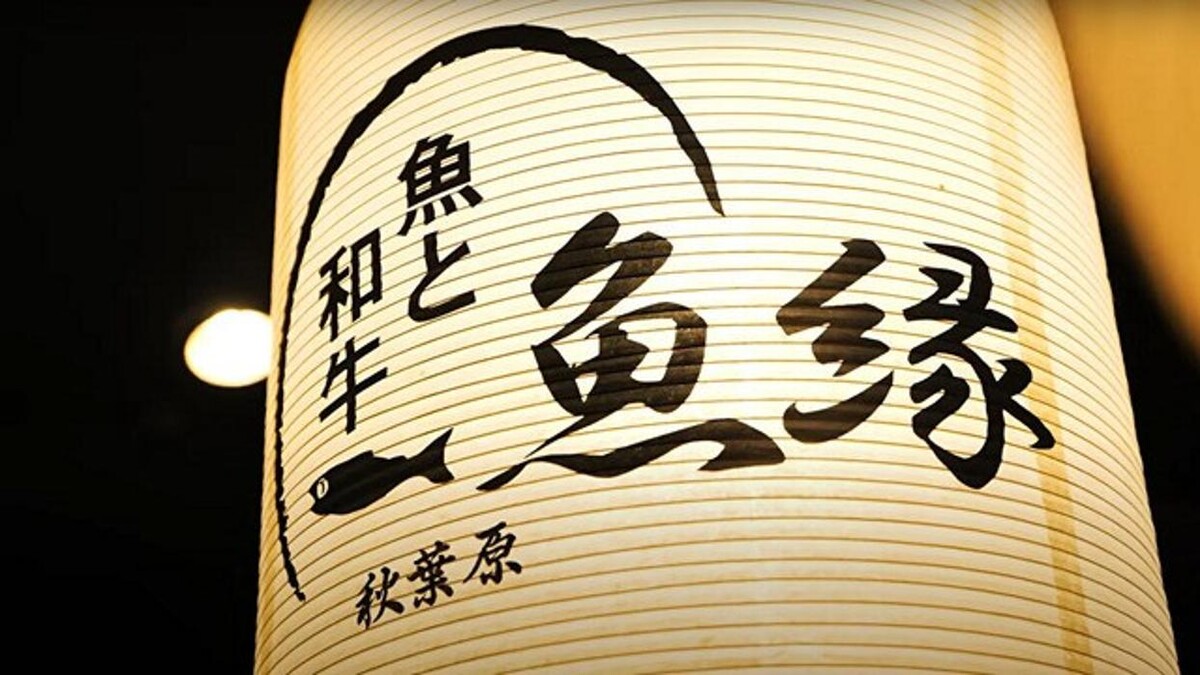 魚と
和牛
魚縁
秋葉原